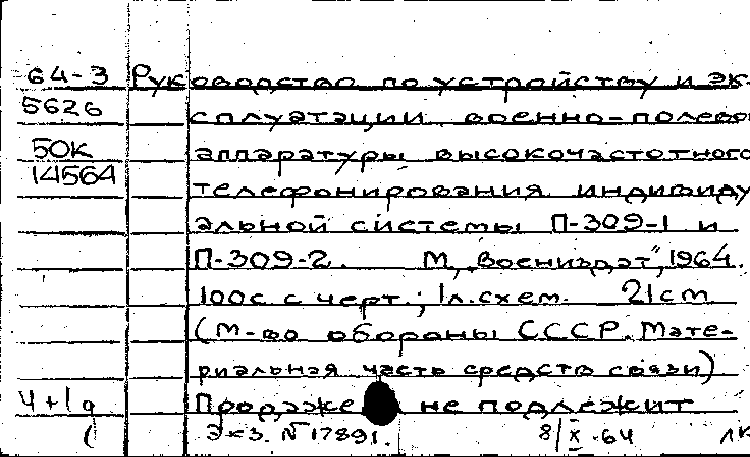 64-3 Руководство по устройству и эк-
5626 сплуатации военно-полево
50к аппаратуры высокочастотного
14564 телефонирования индивиду
альной системы П-309-1 и
П-309-2. М, „Воениздат", 1964.
100с. с черт.; 1л.схем. 21см
(М-во обороны СССР. Мате-
риальная часть средств связи)
4+1д Продаже не подлежит
Экз. № 17891. 8/X-64 лк